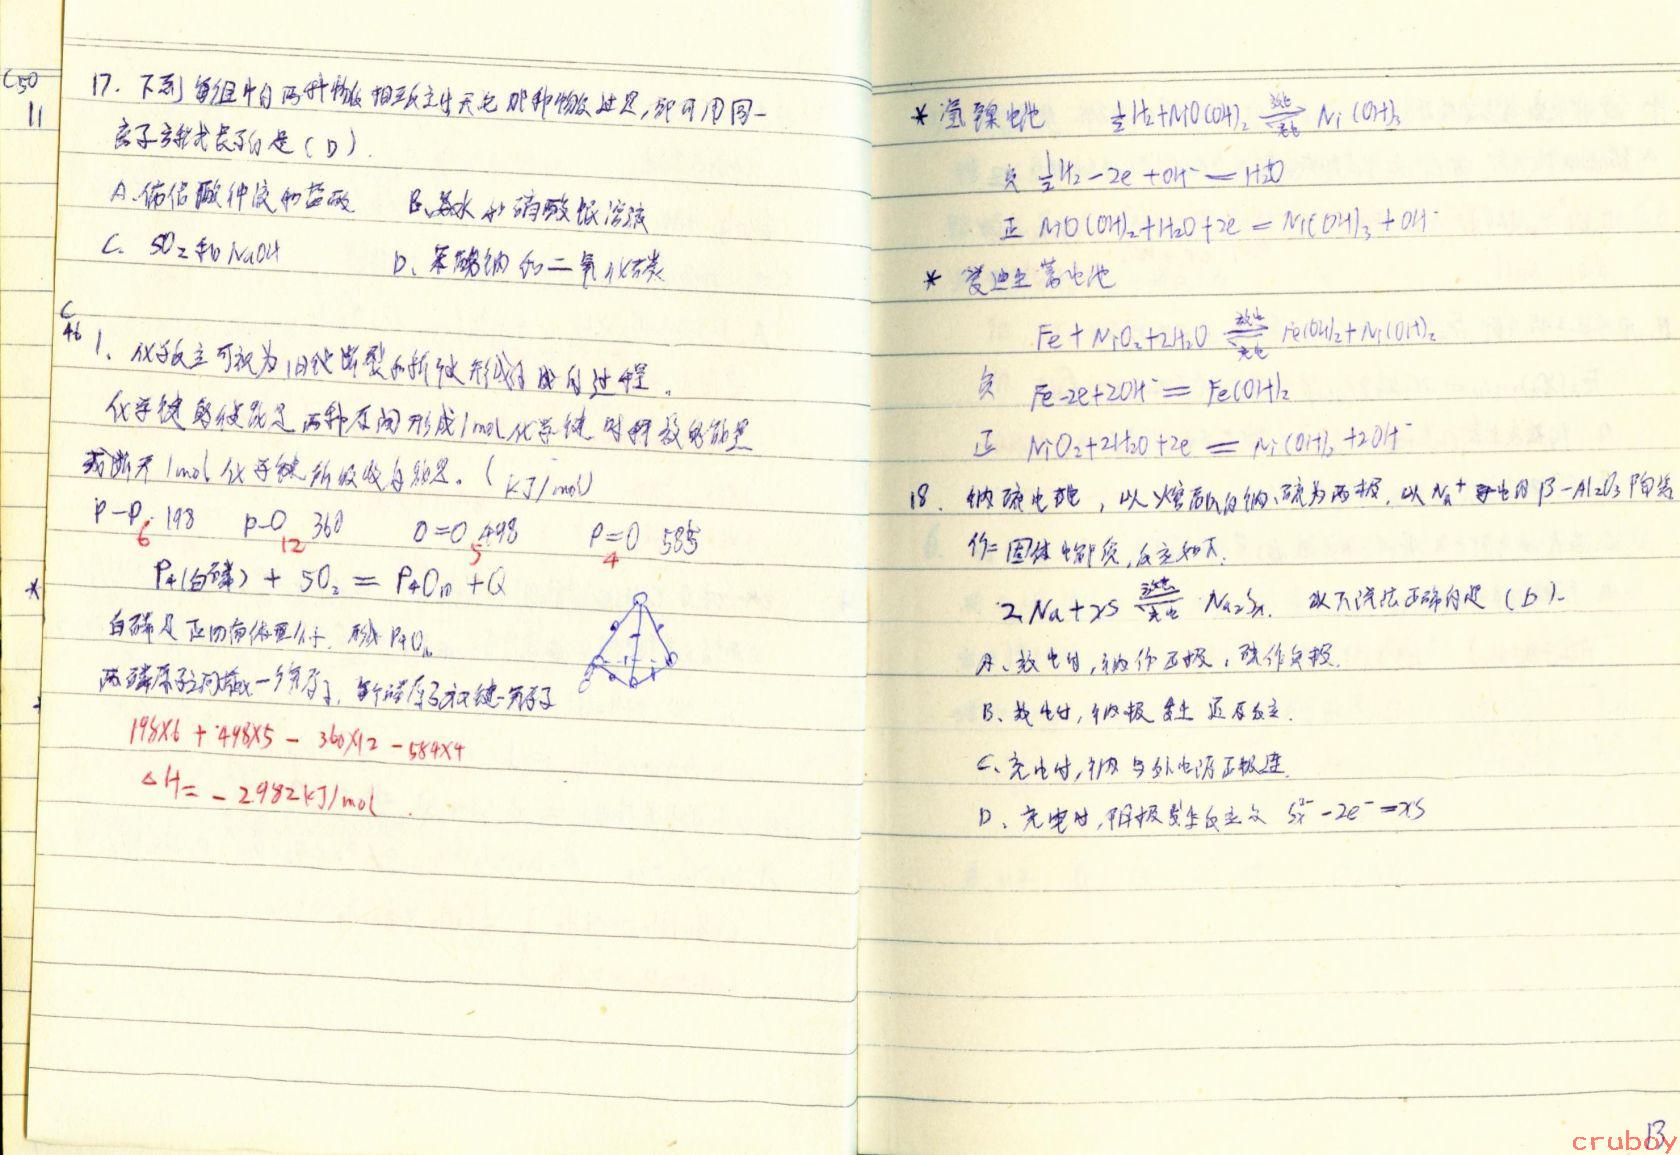 C50
11
17. 下列每组中的两种物质相互反应无论那种物质过量,都可用同一
离子方程式表示的是(D).
A.偏铝酸钠液和盐酸 B.氨水和硝酸银溶液
C. SO₂和NaOH D、苯酚钠和二氧化碳
C
46
1. 化学反应可视为旧键断裂和新键形成的过程.
化学键的键能是两种原子间形成1mol化学键时释放的能量
或断开1mol化学键所吸收的能量.(kJ/mol)
P-P 198 P-O 360 O=O 498 P=O 585
6 12 5 4
* P₄(白磷) + 5O₂ = P₄O₁₀ + Q
白磷是正四面体型分子. 形成P₄O₁₀
两磷原子之间一个氧原子,每个磷原子双键一氧原子
198X6 + 498X5 - 360X12 - 584X4
△H = -2982kJ/mol.
* 氢镍电池 ½H₂+NiO(OH)₂ 放电⇌充电 Ni(OH)₃
负 ½H₂-2e+OH⁻=H₂O
正 NiO(OH)₂+H₂O+2e = Ni(OH)₃+OH⁻
* 爱迪生蓄电池
Fe+NiO₂+2H₂O 放电⇌充电 Fe(OH)₂+Ni(OH)₂
负 Fe-2e+2OH⁻=Fe(OH)₂
正 NiO₂+2H₂O+2e = Ni(OH)₂+2OH⁻
18. 钠硫电池,以熔融的钠、硫为两极,以Na⁺导电的β-Al₂O₃陶瓷
作固体电解质,反应如下.
2Na+xS 放电⇌充电 Na₂Sx. 以下说法正确的是(D).
A、放电时,钠作正极,硫作负极.
B、放电时,钠极发生还原反应.
C、充电时,钠与外电源正极连.
D、充电时,阳极发生反应为 Sx²⁻-2e⁻=xS
13
cruboy